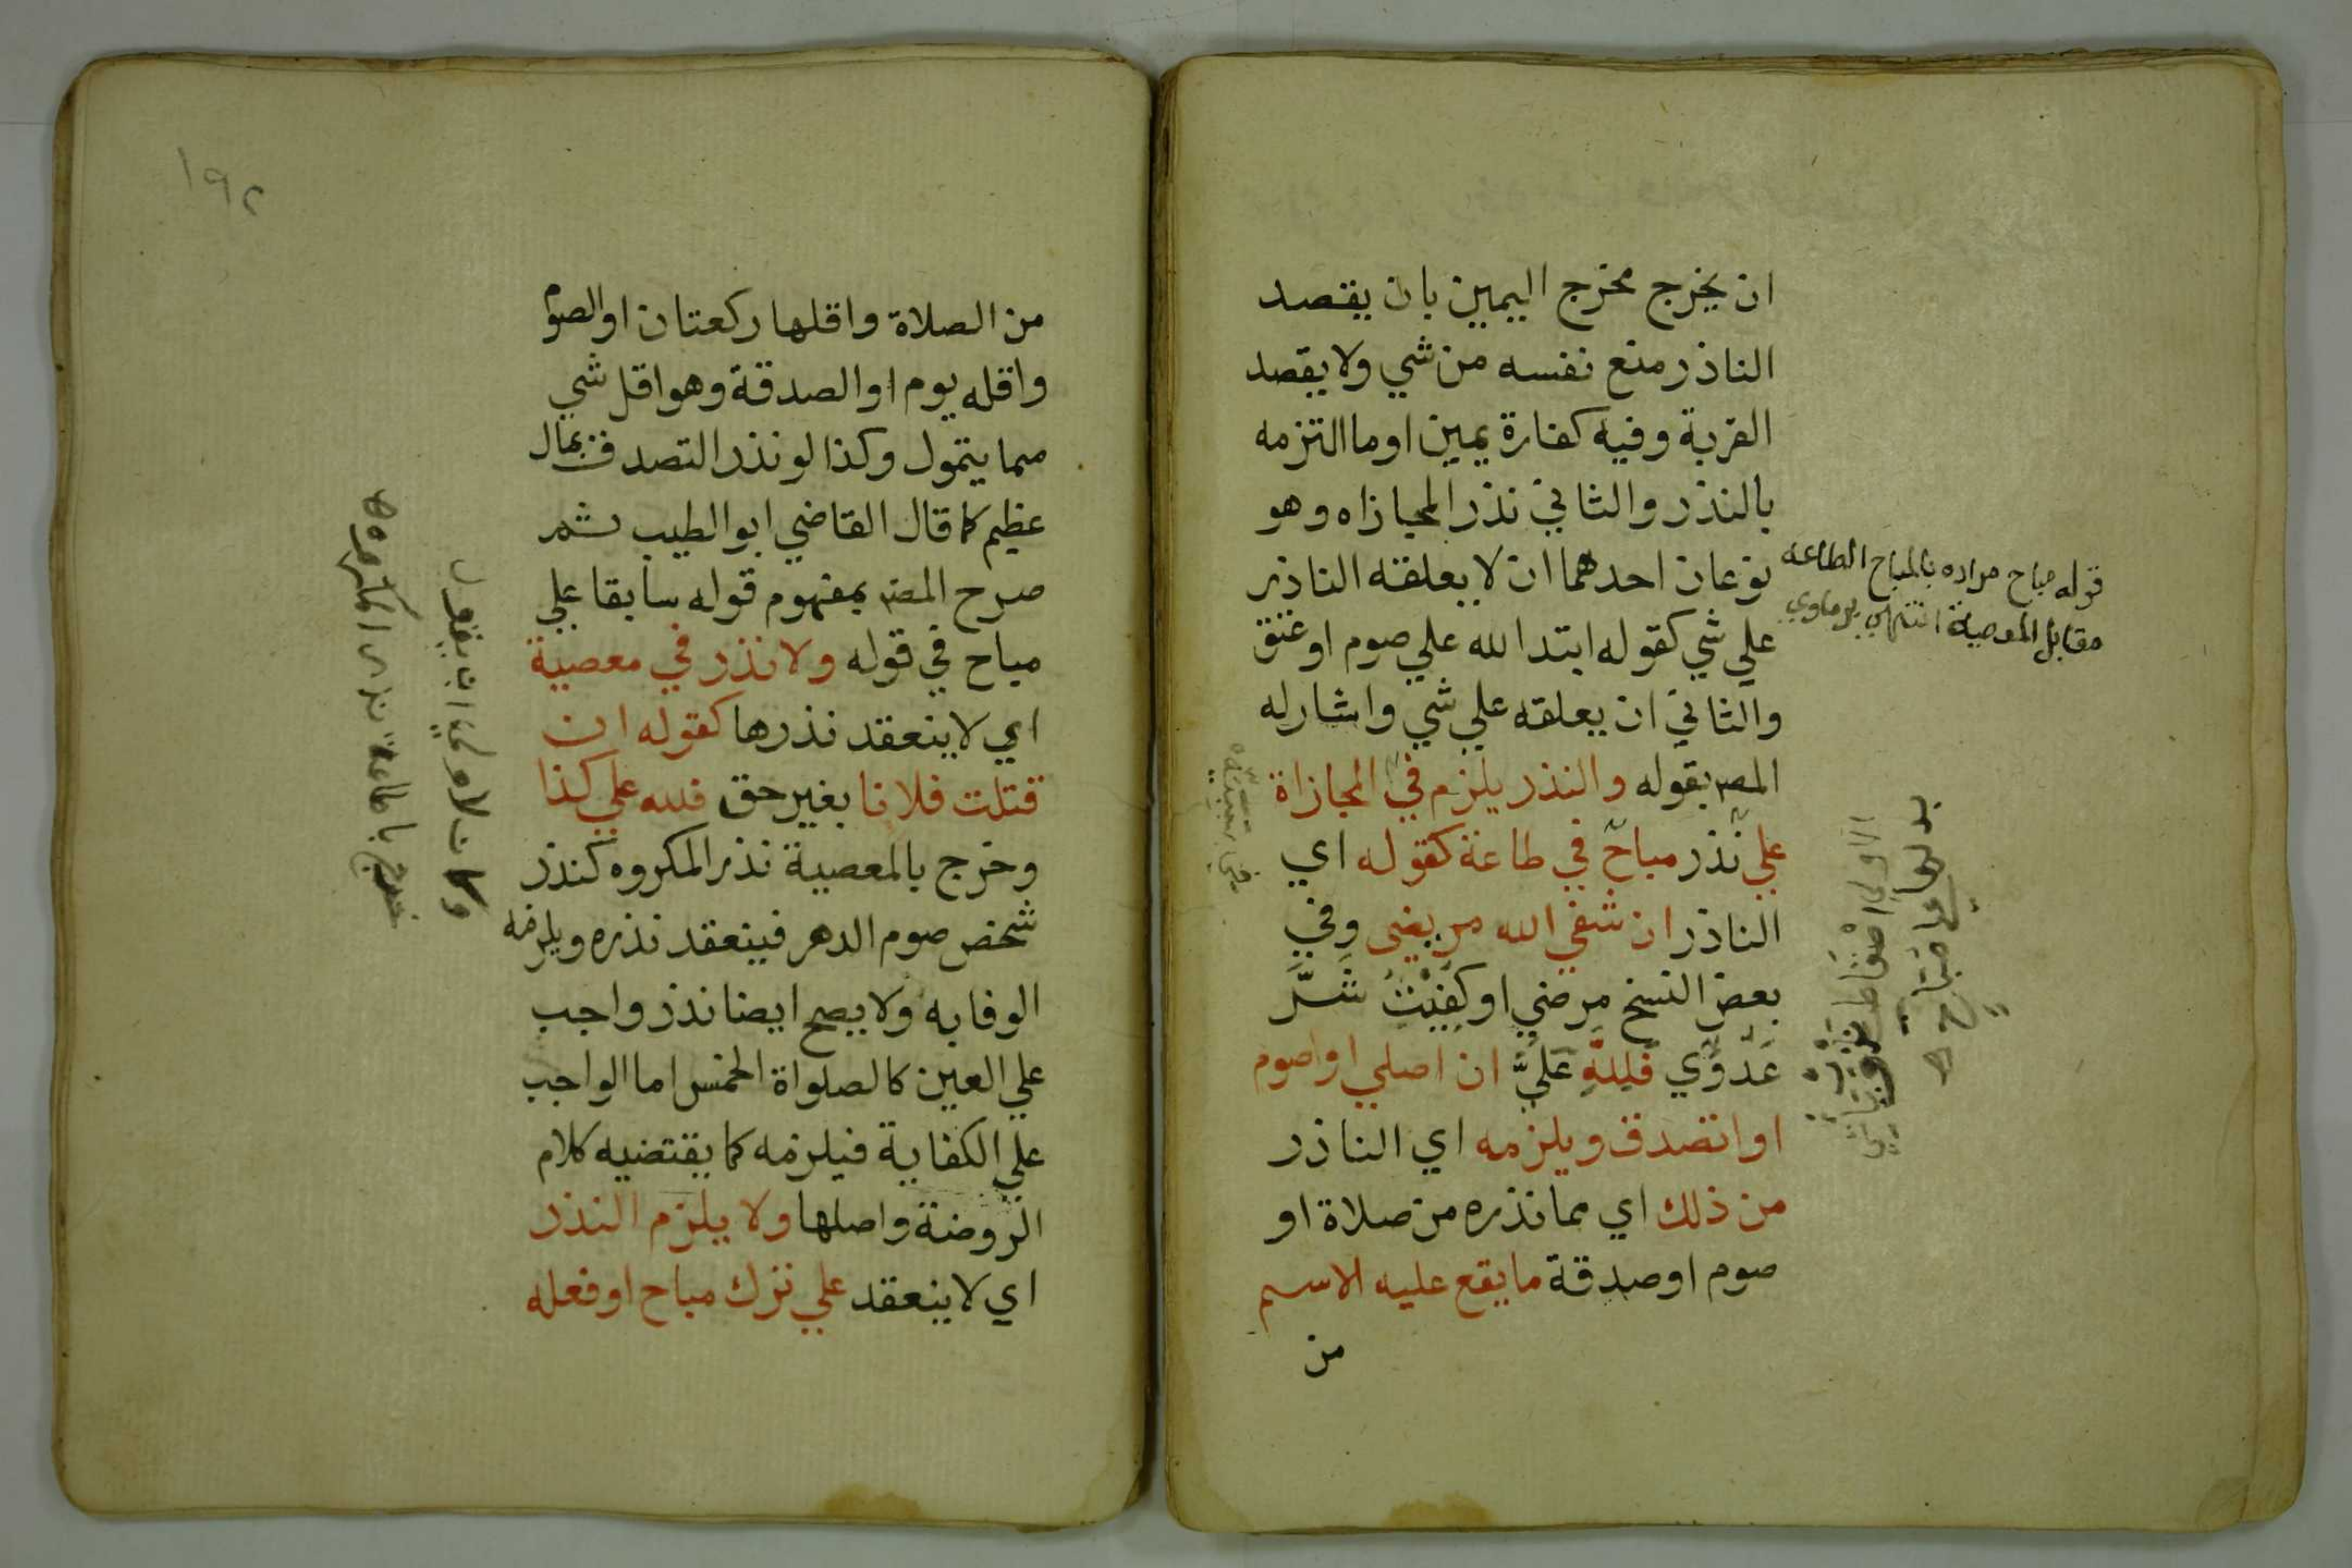 ان يخرج مخرج اليمين بان يقصد
الناذر منع نفسه من شي ولا يقصد
القربة وفيه كفارة يمين او ما التزمه
بالنذر والثاني نذر المجازاه وهو
نوعان احدهما ان لا يعلقه الناذر
علي شي كقوله ابتدا لله علي صوم او عتق
والثاني ان يعلقه علي شي واشار له
المصـ بقوله والنذر يلزم في المجازاة
علي نذر مباح في طاعة كقوله اي
الناذر ان شفي الله مريضى وفي
بعض النسخ مرضي او كُفِيْتُ شَرَّ
عَدُوِّي فَلِلَّهِ عَلَيَّ ان اصلي او اصوم
او اتصدق ويلزمه اي الناذر
من ذلك اي مما نذره من صلاة او
صوم او صدقة ما يقع عليه الاسم
من
قوله مباح مراده بالمباح الطاعه
مقابل المعصية انتهي برماوي
١٩٢
من الصلاة واقلها ركعتان او الصوم
واقله يوم او الصدقة وهو اقل شي
مما يتمول وكذا لو نذر التصدق بمال
عظيم كما قال القاضي ابو الطيب ثم
صرح المصـ بمفهوم قوله سابقا علي
مباح في قوله ولا نذر في معصية
اي لا ينعقد نذرها كقوله ان
قتلت فلانا بغير حق فلله علي كذا
وخرج بالمعصية نذر المكروه كنذر
شخص صوم الدهر فينعقد نذره ويلزمه
الوفا به ولا يصح ايضا نذر واجب
علي العين كالصلواة الخمس اما الواجب
علي الكفاية فيلزمه كما يقتضيه كلام
الروضة واصلها ولا يلزم النذر
اي لا ينعقد علي ترك مباح او فعله